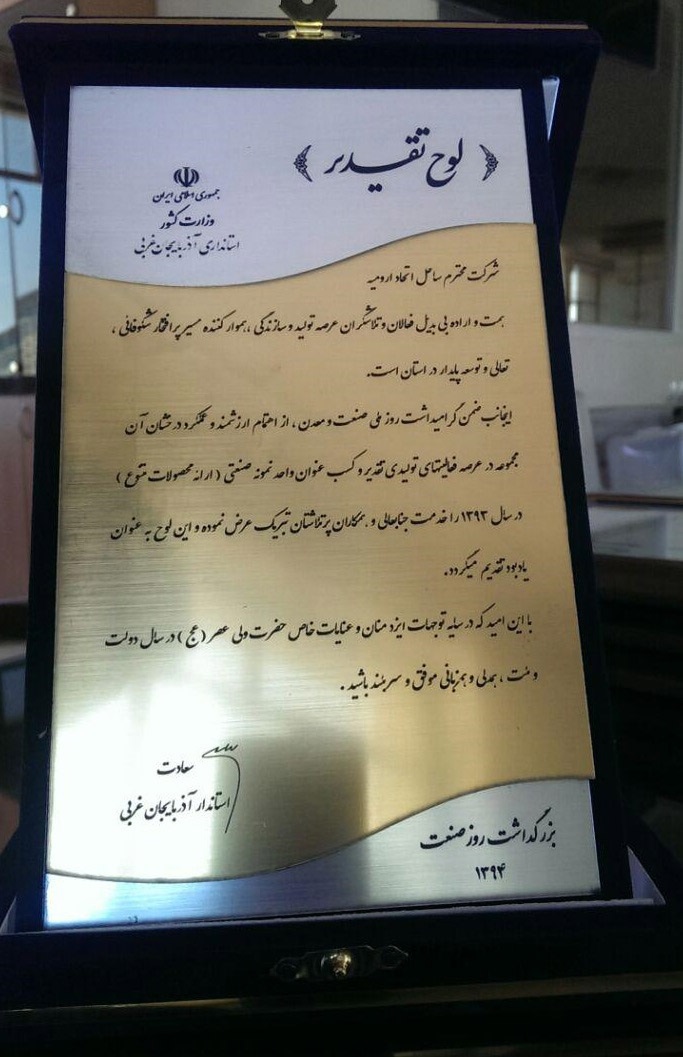 لوح تقدیر
جمهوری اسلامی ایران
وزارت کشور
استانداری آذربایجان غربی
شرکت محترم ساحل اتحاد ارومیه
همت و اراده بی بدیل فعالان و تلاشگران عرصه تولید و سازندگی ، هموار کننده مسیر پر افتخار شکوفائی ،
تعالی و توسعه پایدار در استان است.
اینجانب ضمن گرامیداشت روز ملی صنعت و معدن ، از اهتمام ارزشمند و عملکرد درخشان آن
مجموعه در عرصه فعالیتهای تولیدی تقدیر و کسب عنوان واحد نمونه صنعتی ( ارائه محصولات متنوع )
در سال ۱۳۹۳ را خدمت جنابعالی و همکاران پرتلاشتان تبریک عرض نموده و این لوح به عنوان
یادبود تقدیم میگردد.
با این امید که در سایه توجهات ایزد منان و عنایات خاص حضرت ولی عصر (عج ) در سال دولت
و ملت ، همدلی و همزبانی موفق و سربلند باشید .
سعادت
استاندار آذربایجان غربی
بزرگداشت روز صنعت
۱۳۹۴